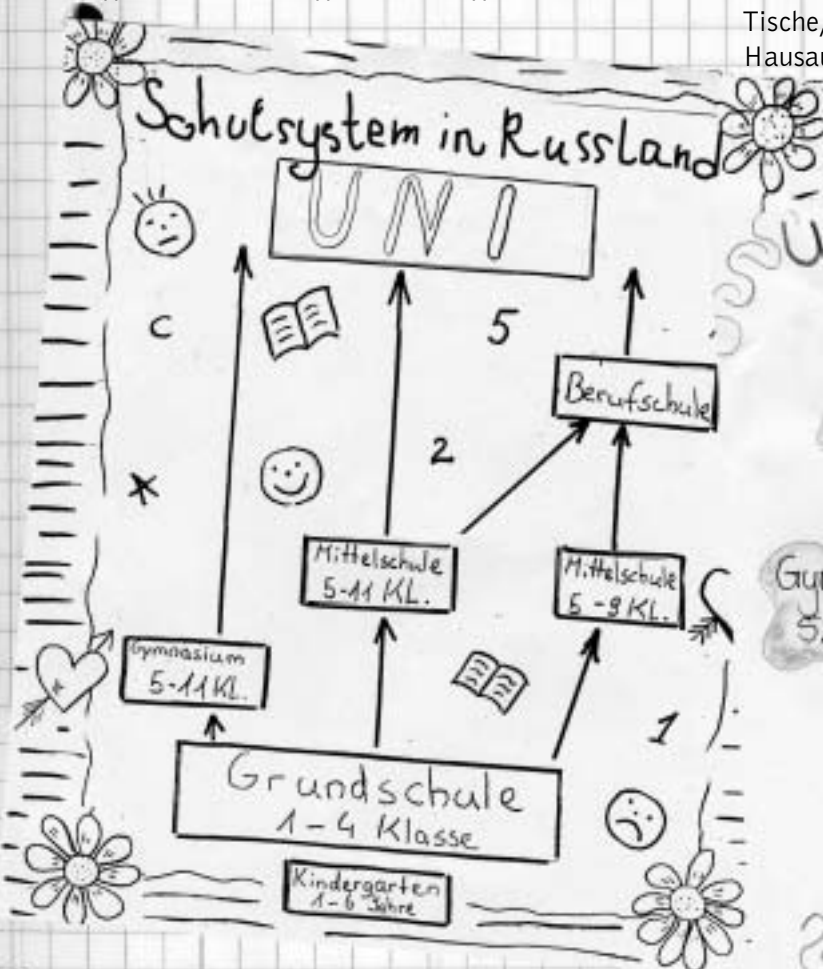 Tische,
Hausau
Schulsystem in Russland
UNI
C
5
Berufschule
2
Mittelschule
5-11 KL.
Mittelschule
5-9 KL.
Gymnasium
5-11 KL.
1
Grundschule
1-4 Klasse
Kindergarten
1-6 Jahre